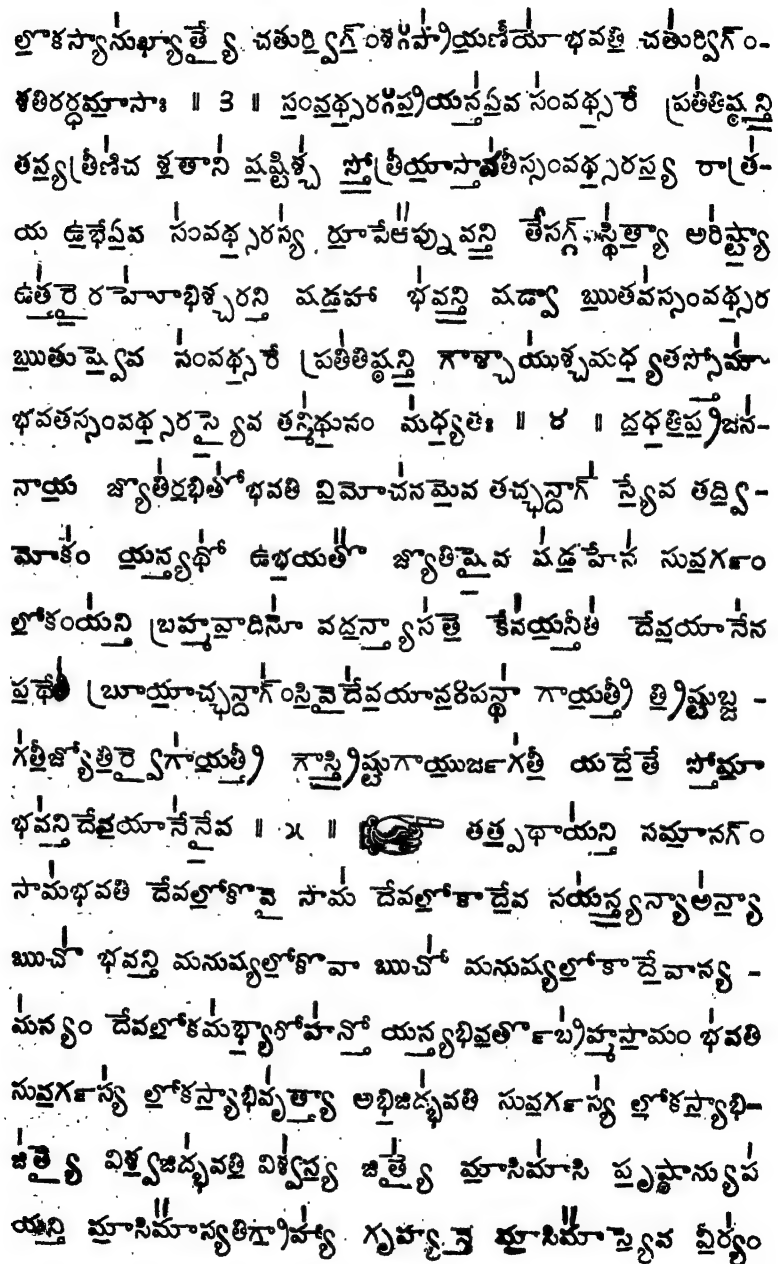 లోకస్యానుఖ్యాత్యై చతుర్విగ్ంశఃప్రాయణీయోభవతి చతుర్విగ్ం-
శతిరర్ధమాసాః ॥ ౩ ॥ సంవథ్సరఃప్రాయన్తఏవ సంవథ్సరే ప్రతితిష్ఠన్తి
తస్యత్రీణిచ శతాని షష్టిశ్చ స్తోత్రీయాస్తావతీస్సంవథ్సరస్య రాత్ర-
య ఉభేఏవ సంవథ్సరస్య రూపేఆప్నువన్తి తేసగ్గ్‌స్థిత్యా అరిష్ట్యా
ఉత్తరైరహోభిశ్చరన్తి షడహా భవన్తి షడ్వా ఋతవస్సంవథ్సర
ఋతుష్వేవ సంవథ్సరే ప్రతితిష్ఠన్తి గౌశ్చాయుశ్చమధ్యతస్తోమౌ
భవతస్సంవథ్సరస్యైవ తన్మిథునం మధ్యతః ॥ ౪ ॥ దధతిప్రజన-
నాయ జ్యోతిరభితోభవతి విమోచనమేవ తచ్ఛన్దాగ్ స్యేవ తద్వి-
మోకం యన్త్యథో ఉభయతో జ్యోతిషైవ షడహేన సువర్గం
లోకంయన్తి బ్రహ్మవాదినో వదన్త్యాసతే కేనయన్తీతి దేవయానేన
పథేతి బ్రూయాచ్ఛన్దాగ్ంసివైదేవయానఃపన్థా గాయత్రీ త్రిష్టుబ్జ-
గతీజ్యోతిర్వైగాయత్రీ గౌస్త్రిష్టుగాయుర్జగతీ యదేతే స్తోమా
భవన్తిదేవయానేనైవ ॥ ౫ ॥ తత్పథాయన్తి సమానగ్ం
సామభవతి దేవలోకోవై సామ దేవలోకాదేవ నయన్త్యన్యాఅన్యా
ఋచో భవన్తి మనుష్యలోకోవా ఋచో మనుష్యలోకాదేవాన్య-
మన్యం దేవలోకమభ్యారోహన్తో యన్త్యభివర్తోబ్రహ్మసామం భవతి
సువర్గస్య లోకస్యాభివృత్యా అభిజిద్భవతి సువర్గస్య లోకస్యాభి-
జిత్యై విశ్వజిద్భవతి విశ్వస్య జిత్యై మాసిమాసి పృష్ఠాన్యుప
యన్తి మాసిమాస్యతిగ్రాహ్యా గృహ్యన్తే మాసిమాస్యేవ వీర్యం